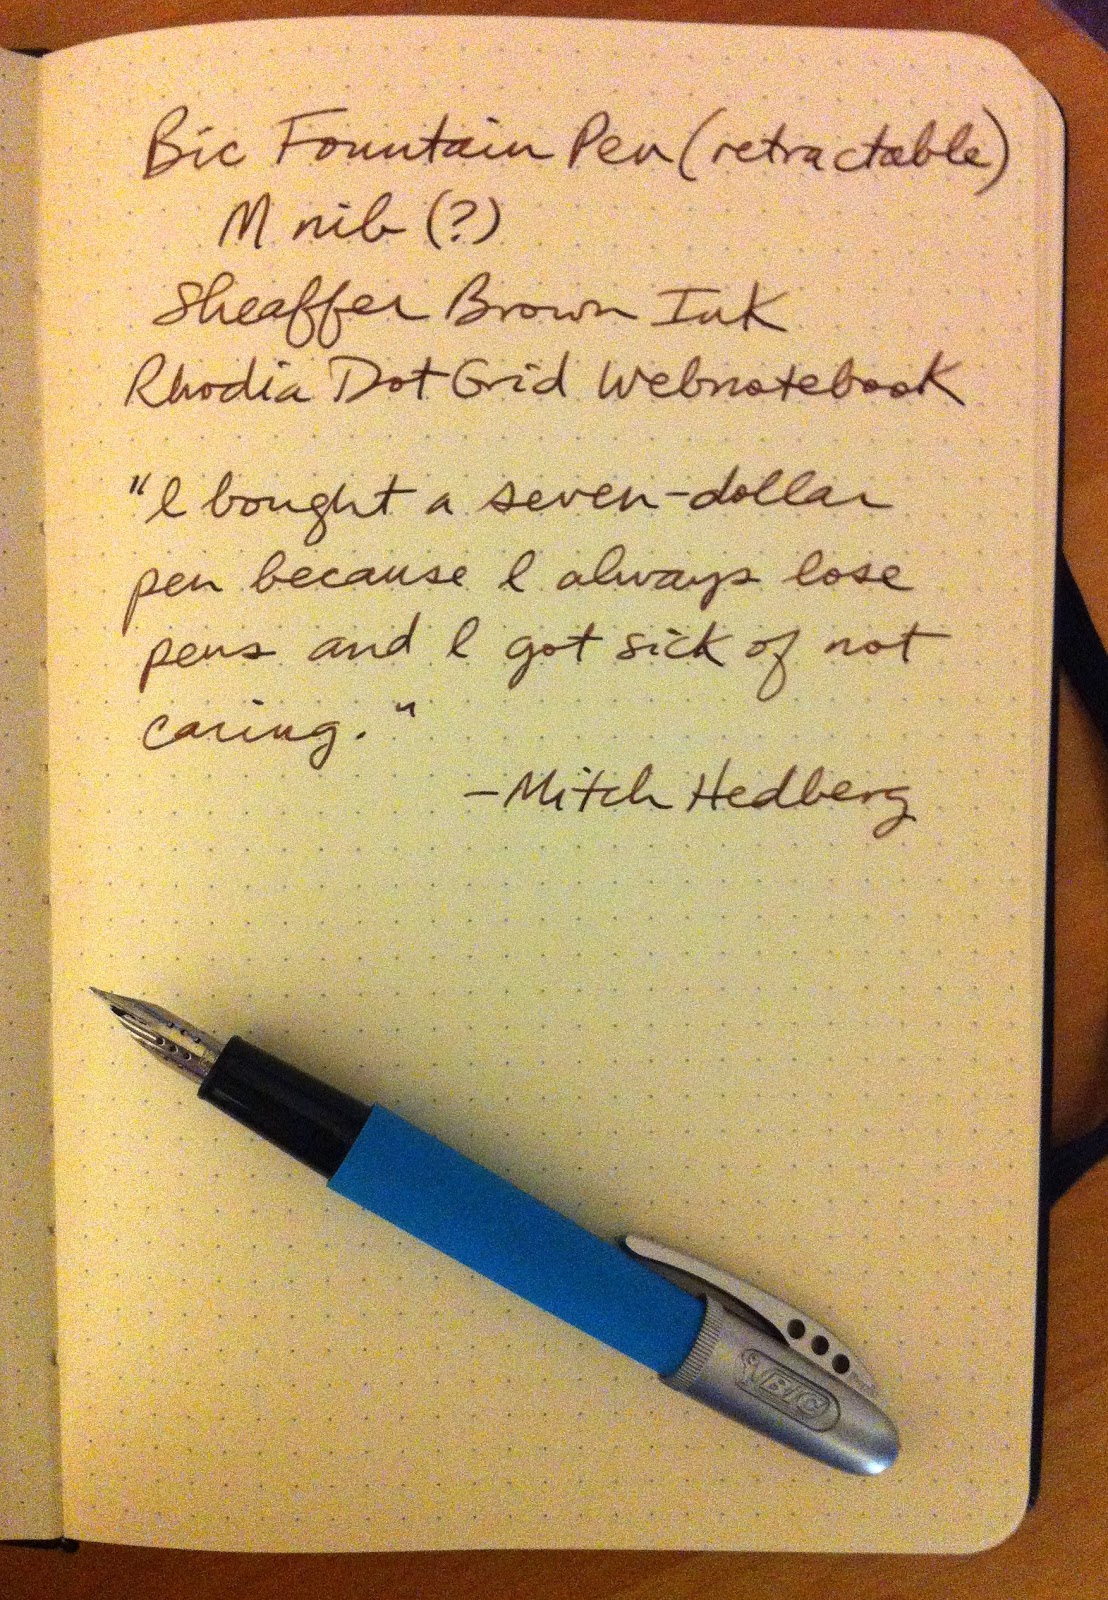 Bic Fountain Pen (retractable)
M nib (?)
Sheaffer Brown Ink
Rhodia Dot Grid Webnotebook
"I bought a seven-dollar
pen because I always lose
pens and I got sick of not
caring."
-Mitch Hedberg
BIC